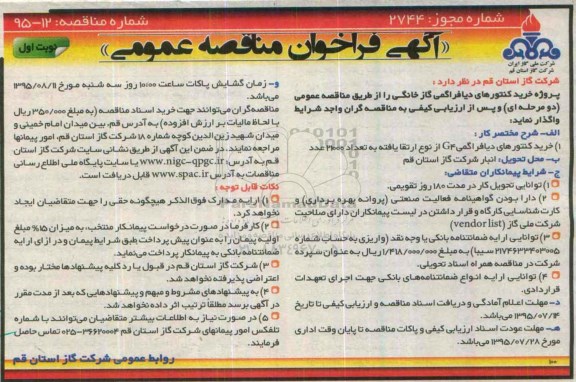 شماره مجوز: ۲۷۴۴
شماره مناقصه: ۱۲-۹۵
شرکت ملی گاز ایران
شرکت گاز استان قم
«آگهی فراخوان مناقصه عمومی»
نوبت اول
شرکت گاز استان قم در نظر دارد:
پروژه خرید کنتورهای دیافراگمی گاز خانگی را از طریق مناقصه عمومی
(دو مرحله ای) و پس از ارزیابی کیفی به مناقصه گران واجد شرایط
واگذار نماید:
الف- شرح مختصر کار:
۱) خرید کنتورهای دیافراگمی G۴ از نوع ارتقا یافته به تعداد ۲۱۰۰۰ عدد
ب- محل تحویل: انبار شرکت گاز استان قم
ج- شرایط پیمانکاران متقاضی:
۱) توانایی تحویل کار در مدت ۱۸۰ روز تقویمی.
۲) دارا بودن گواهینامه فعالیت صنعتی (پروانه بهره برداری) و
کارت شناسایی کارگاه و قرار داشتن در لیست پیمانکاران دارای صلاحیت
شرکت ملی گاز (vendor list)
۳) توانایی ارایه ضمانتنامه بانکی یا وجه نقد (واریزی به حساب شماره
سیبا) به مبلغ ۱/۴۱۸/۰۰۰/۰۰۰ ریال به عنوان سپرده
شرکت در مناقصه همراه اسناد تحویلی.
۴) توانایی ارایه انواع ضمانتنامه‌های بانکی جهت اجرای تعهدات
قراردادی.
د- مهلت اعلام آمادگی و دریافت اسناد مناقصه و ارزیابی کیفی تا تاریخ
۱۳۹۵/۰۷/۱۴ می‌باشد.
هـ- مهلت عودت اسناد ارزیابی کیفی و پاکات مناقصه تا پایان وقت اداری
مورخ ۱۳۹۵/۰۷/۲۸ می‌باشد.
و- زمان گشایش پاکات ساعت ۱۰:۰۰ روز سه شنبه مورخ ۱۳۹۵/۰۸/۱۱
می‌باشد.
مناقصه‌گران می‌توانند جهت خرید اسناد مناقصه (به مبلغ ۳۵۰/۰۰۰ ریال
با لحاظ مالیات بر ارزش افزوده) به آدرس قم، بین میدان امام خمینی و
میدان شهید زین الدین کوچه شماره ۱۸ شرکت گاز استان قم، امور پیمانها
مراجعه نمایند. در ضمن این آگهی از طریق نشانی سایت شرکت گاز استان
قم به آدرس: www.nigc-qpgc.ir یا سایت پایگاه ملی اطلاع رسانی
مناقصات به آدرس www.spac.ir قابل دریافت است.
نکات قابل توجه:
۱) ارایه مدارک فوق الذکر هیچگونه حقی را جهت متقاضیان ایجاد
نخواهد کرد.
۲) کارفرما در صورت درخواست پیمانکار منتخب، به میزان ۱۵% مبلغ
اولیه پیمان را به عنوان پیش پرداخت طبق شرایط پیمان و در ازای ارایه
ضمانتنامه بانکی به پیمانکار پرداخت می‌نماید.
۳) شرکت گاز استان قم در قبول یا رد کلیه پیشنهادها مختار بوده و
اعتراضی پذیرفته نخواهد شد.
۴) به پیشنهادهای مشروط و مبهم و پیشنهادهایی که بعد از مدت مقرر
در آگهی برسد مطلقاً ترتیب اثر داده نخواهد شد.
۵) در صورت نیاز به اطلاعات بیشتر متقاضیان می‌توانند با شماره
تلفکس امور پیمانهای شرکت گاز استان قم ۳۶۶۲۰۰۰۴-۰۲۵ تماس حاصل
فرمایند.
روابط عمومی شرکت گاز استان قم